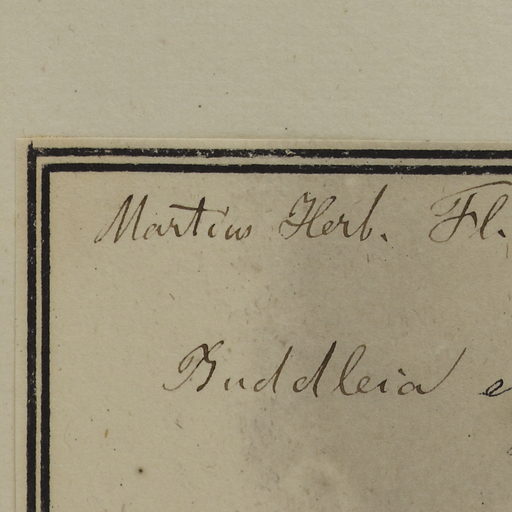 Martius Herb. Fl.
Buddleia